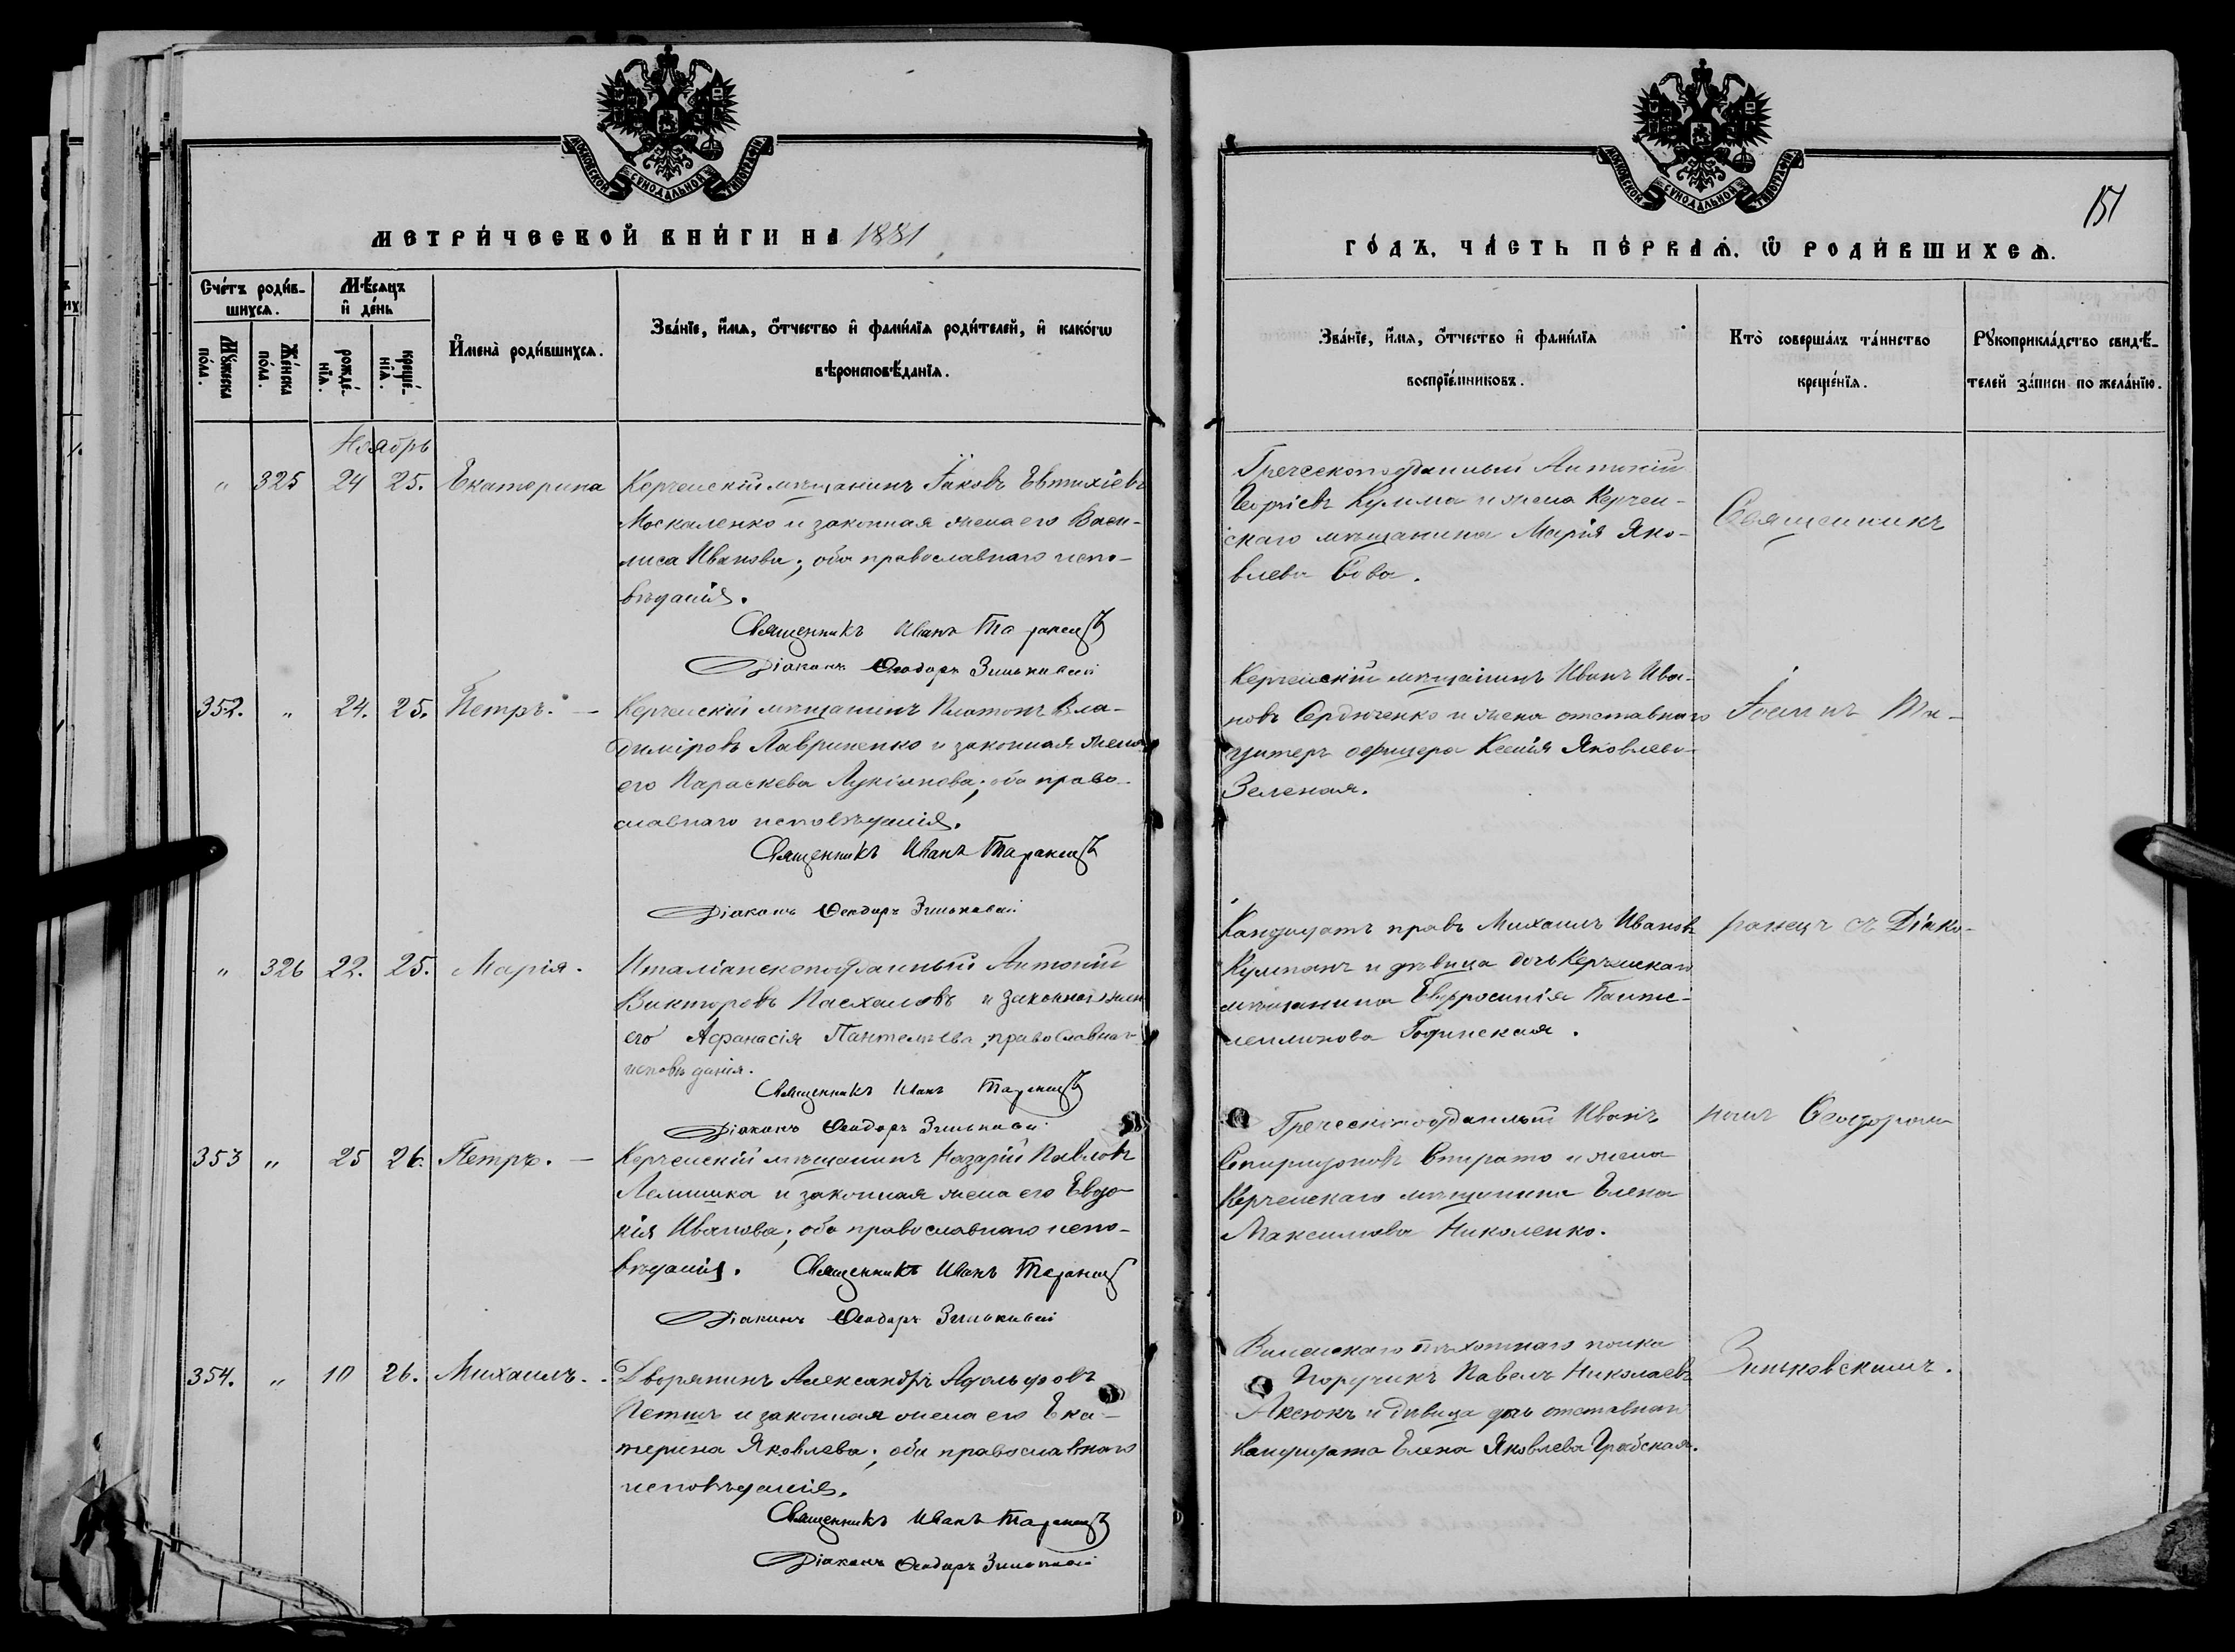 МОСКОВСКОЙ СѴНОДАЛЬНОЙ ТИПОГРАФІИ
МЕТРИ́ЧЕСКОЙ КНИ́ГИ НА 1881
Сче́тъ роди́в-
шихсѧ.
Мѣ́сѧцъ
и҆ де́нь
Мꙋ́жеска
по́ла.
Же́нска
по́ла.
рожде́-
нїѧ.
креще́-
нїѧ.
И҆мена̀ роди́вшихсѧ.
Зва́нїе, и҆́мѧ, ѻ҆́тчество и҆ фами́лїѧ роди́телей, и҆ како́гѡ
вѣроисповѣ́данїѧ.
Ноябрь
" 325 24 25. Екатерина
Керченскій мѣщанинъ Іаковъ Евтихіевъ
Москаленко и законная жена его Васи-
лиса Иванова; оба православнаго испо-
вѣданія.
Священникъ Иванъ Таранецъ
Діаконъ Ѳеодоръ Зиньковскій
352. " 24. 25. Петръ. —
Керченскій мѣщанинъ Платонъ Вла-
диміровъ Лавриненко и законная жена
его Параскева Лукіанова; оба право-
славнаго исповѣданія.
Священникъ Иванъ Таранецъ
Діаконъ Ѳеодоръ Зиньковскій
" 326 22. 25. Марія.
Италіанскоподданный Антоній
Викторовъ Пасхаловъ и законная жена
его Афанасія Пантелѣева, православнаго
исповѣданія.
Священникъ Иванъ Таранецъ
Діаконъ Ѳеодоръ Зиньковскій
353 " 25 26. Петръ. —
Керченскій мѣщанинъ Назарій Павловъ
Лемишка и законная жена его Евдо-
кія Иванова; оба православнаго испо-
вѣданія. Священникъ Иванъ Таранецъ
Діаконъ Ѳеодоръ Зиньковскій
354. " 10 26. Михаилъ.
Дворянинъ Александръ Адольфовъ
Петшъ и законная жена его Ека-
терина Яковлева; оба православнаго
исповѣданія.
Священникъ Иванъ Таранецъ
Діаконъ Ѳеодоръ Зиньковскій
МОСКОВСКОЙ СѴНОДАЛЬНОЙ ТИПОГРАФІИ
151
ГО́ДЪ, ЧА́СТЬ ПЕ́РВАѦ, Ѡ҆ РОДИ́ВШИХСѦ.
Зва́нїе, и҆́мѧ, ѻ҆́тчество и҆ фами́лїѧ
воспрїе́мниковъ.
Кто̀ соверша́лъ та́инство
креще́нїѧ.
Рꙋкоприкла́дство свидѣ́-
телей за́писи по жела́нїю.
Греческоподданный Антоній
Георгіевъ Кулима и жена Керчен-
скаго мѣщанина Марія Яко-
влева Сова.
Керченскій мѣщанинъ Иванъ Ива-
новъ Сердюченко и жена отставнаго
унтеръ офицера Ксенія Яковлева
Зеленая.
Кандидатъ правъ Михаилъ Ивановъ
Кумпанъ и дѣвица дочь Керченскаго
мѣщанина Евфросинія Панте-
леимонова Годинская.
Греческоподданный Иванъ
Спиридоновъ Спирато и жена
Керченскаго мѣщанина Елена
Максимова Николенко.
Виленскаго пѣхотнаго полка
Поручикъ Павелъ Николаевъ
Аксюкъ и дѣвица дочь отставнаго
Кандидата Елена Яковлева Грабская.
Священникъ
Іоаннъ Та-
ранецъ съ Діако-
номъ Ѳеодоромъ
Зиньковскимъ.